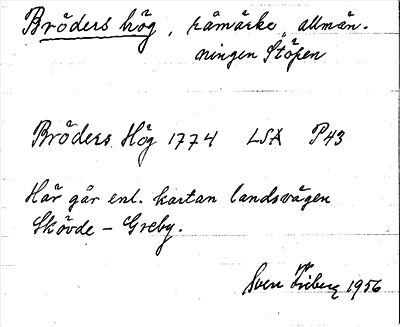 Bröders hög, råmärke, allmän-
ningen Stöpen
Bröders Hög 1774 LSA P43
Här går enl. kartan landsvägen
Skövde – Greby.
Sven 1956